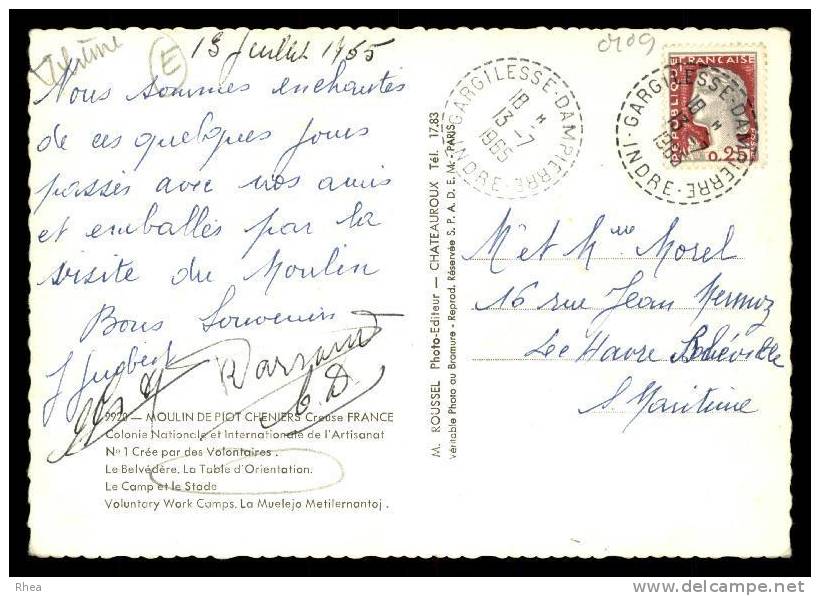 13 Juillet 1965
E
0109
Nous sommes enchantés
de ces quelques jours
passés avec nos amis
et emballés par la
visite du Moulin
Bons Souvenirs
9920 — MOULIN DE PIOT CHENIERS Creuse FRANCE
Colonie Nationale et Internationale de l'Artisanat
N° 1 Crée par des Volontaires.
Le Belvédère. La Table d'Orientation.
Le Camp et le Stade
Voluntary Work Camps. La Muelejo Metilernantoj.
M. ROUSSEL Photo-Editeur — CHATEAUROUX Tél. 17.83
Véritable Photo au Bromure - Reprod. Réservée S. P. A. D. E. M. - PARIS
GARGILESSE-DAMPIERRE
18 H
13-7
1965
INDRE
REPUBLIQUE FRANÇAISE
POSTES
0.25
GARGILESSE-DAMPIERRE
18 H
13-7
INDRE
Mr et Mme Morel
16 rue Jean Mermoz
Le Havre
S. Maritime
Rhea
www.delcampe.net